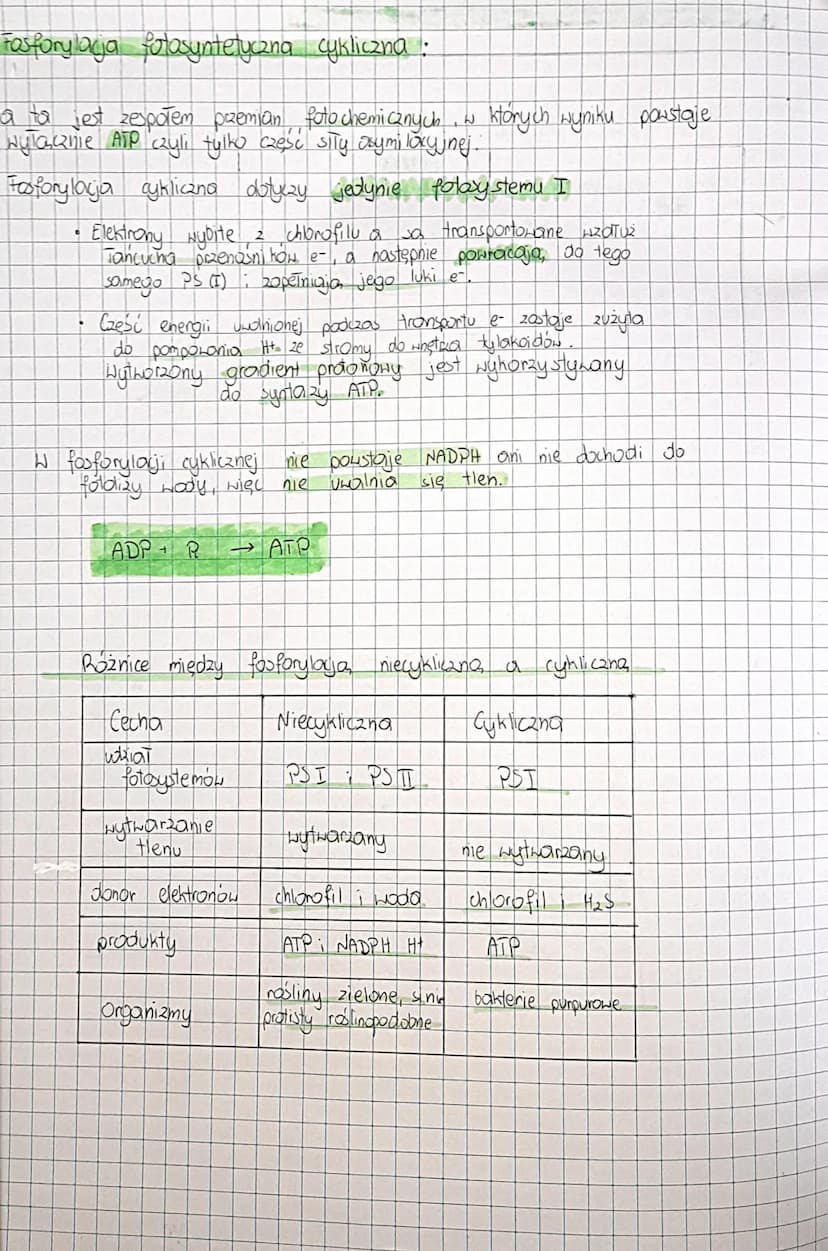 Fosforylacja fotosyntetyczna cykliczna :
a ta jest zespołem przemian fotochemicznych, w których wyniku powstaje
wyłącznie ATP czyli tylko część siły asymilacyjnej.
Fosforylacja cykliczna dotyczy jedynie fotosystemu I
• Elektrony wybite z chlorofilu a są transportowane wzdłuż
łańcucha przenośników e-, a następnie powracają do tego
samego PS (I) i zapełniają jego luki e-.
• Część energii uwolnionej podczas transportu e- zostaje zużyta
do pompowania H+ ze stromy do wnętrza tylakoidów.
Wytworzony gradient protonowy jest wykorzystywany
do syntazy ATP.
W fosforylacji cyklicznej nie powstaje NADPH ani nie dochodi do
fotolizy wody, więc nie uwalnia się tlen.
ADP + Pi → ATP
Różnice między fosforylacją niecykliczną a cykliczną
Cecha Niecykliczna Cykliczna
udział
fotosystemów PS I i PS II PSI
wytwarzanie
tlenu wytwarzany nie wytwarzany
donor elektronów chlorofil i woda chlorofil i H₂S
produkty ATP i NADPH H+ ATP
organizmy rośliny zielone, sinice bakterie purpurowe
protisty roślinopodobne